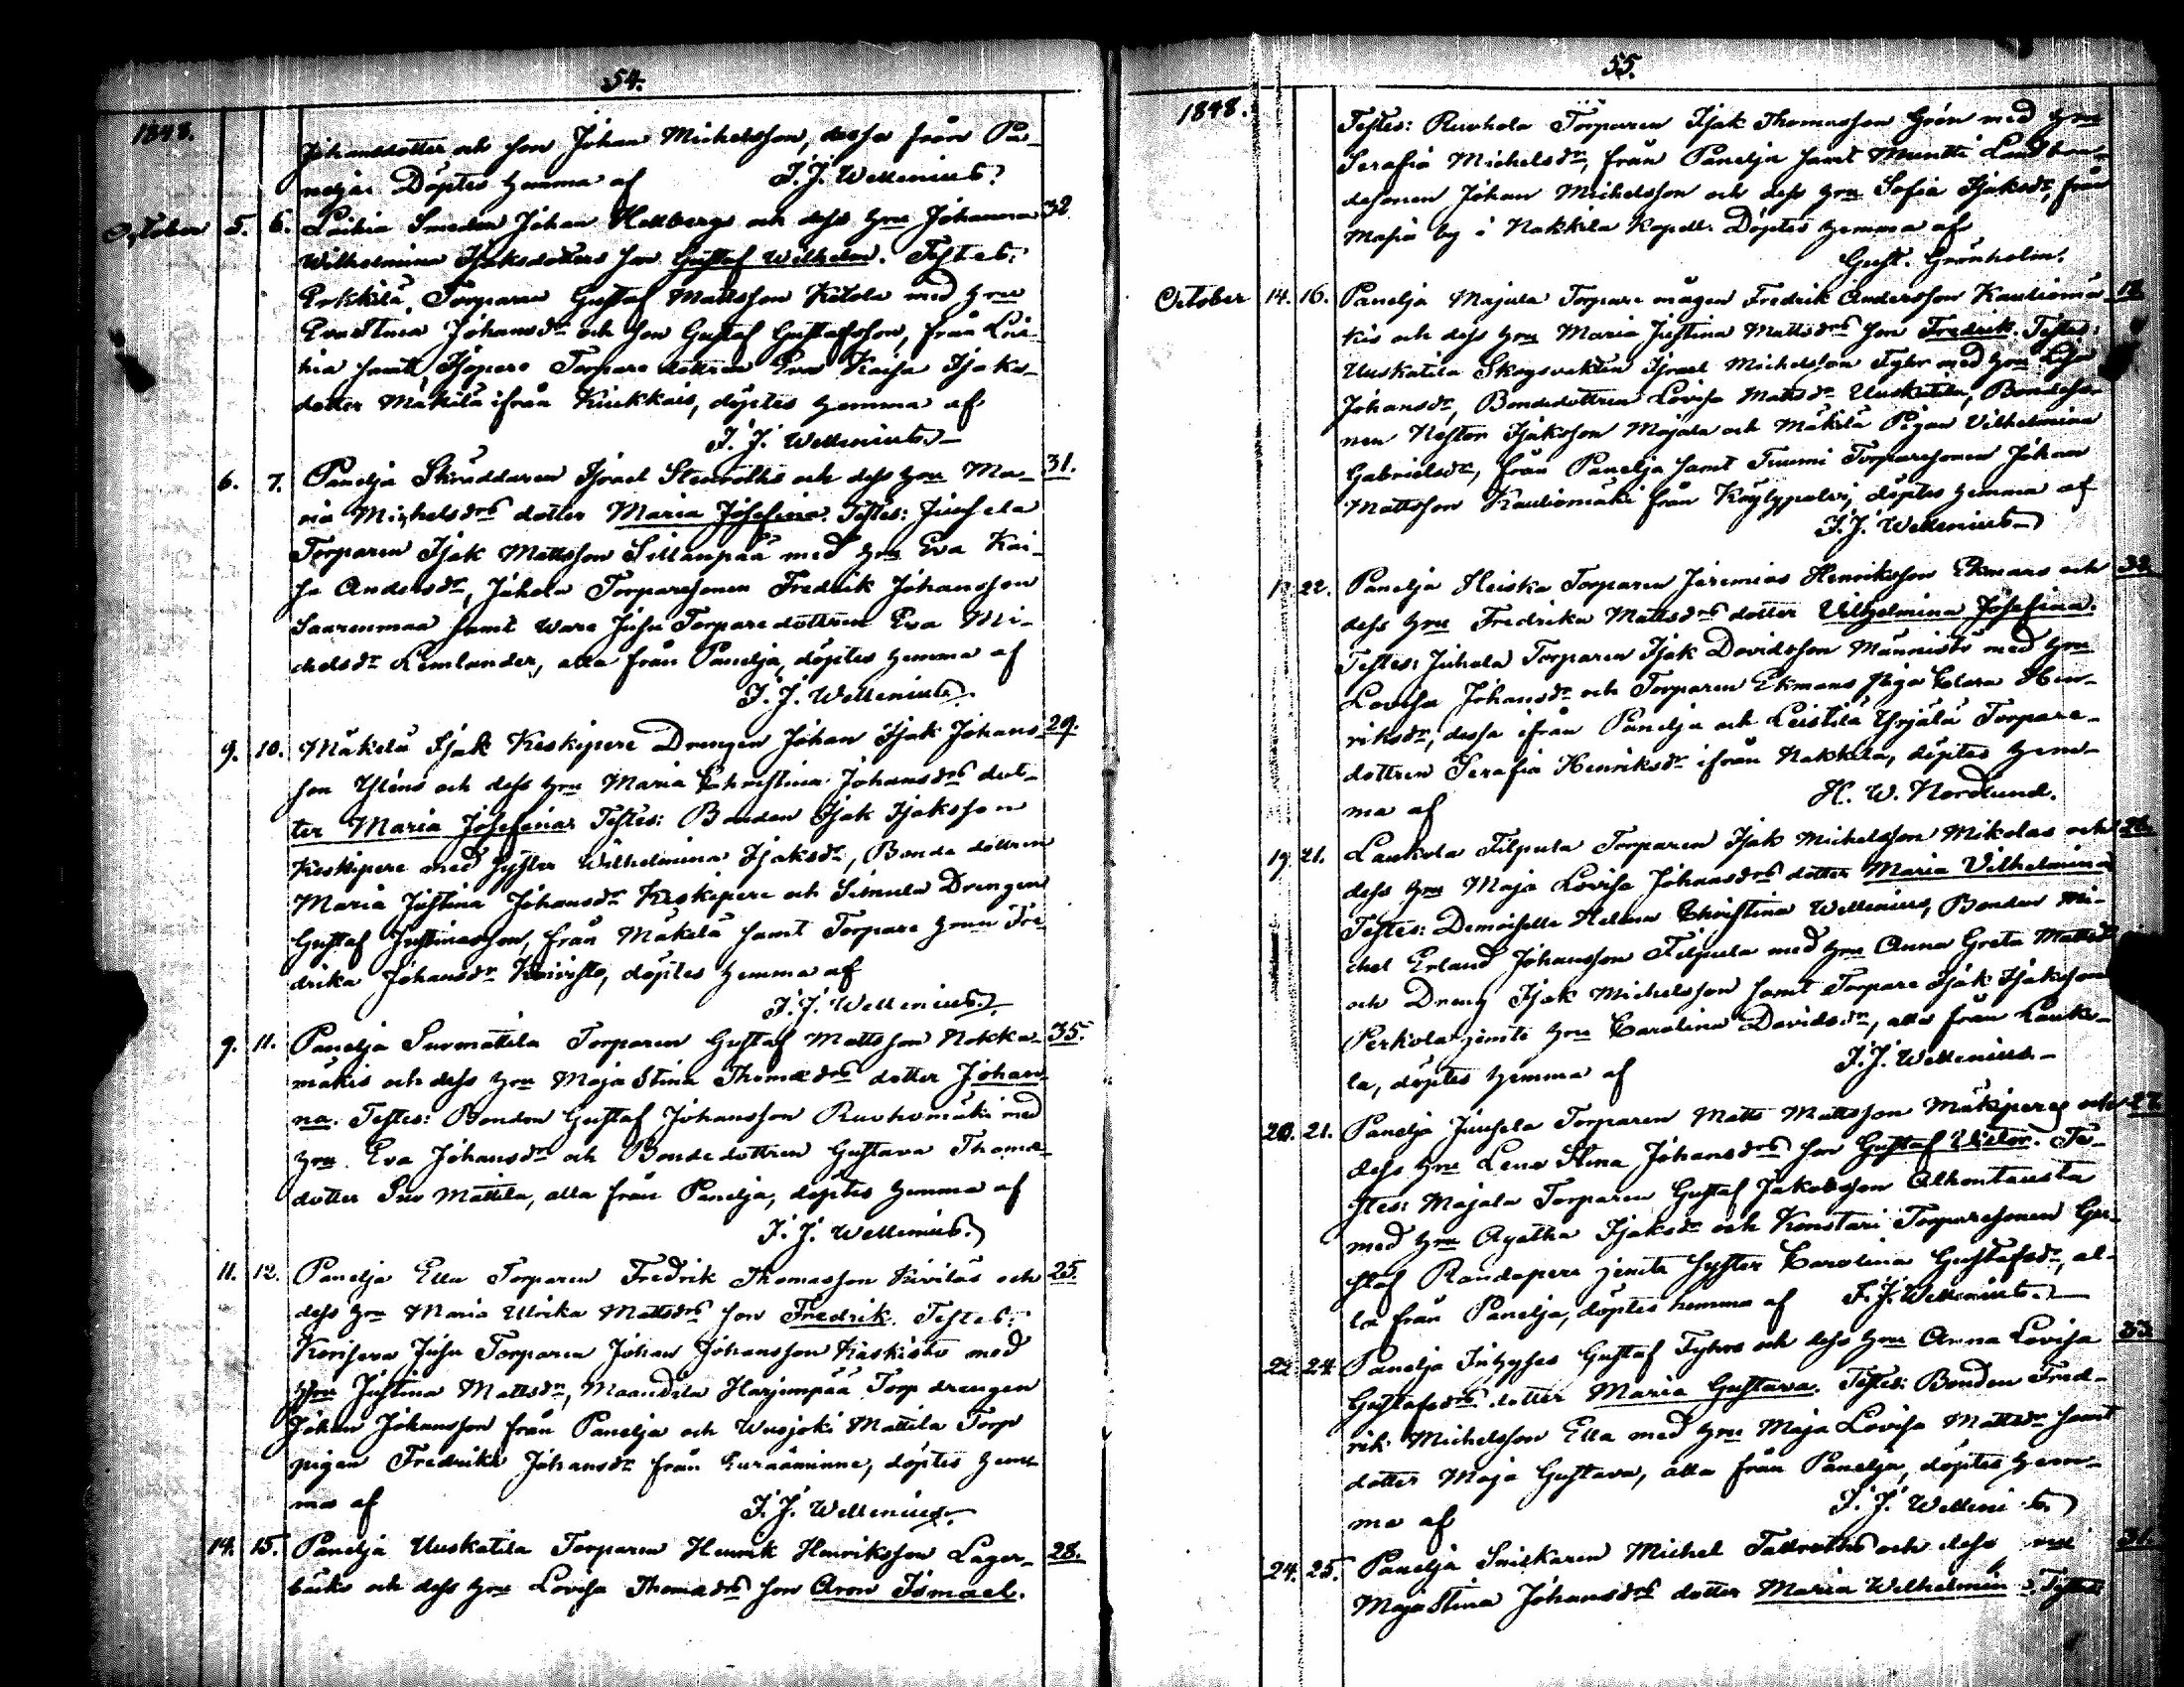 54.
1848.
Johansdotter och son Johan Michelsson, dessa från Pa-
nelja. Döptes hemma af F. J. Wellenius.
October 5. 6. Laihia Smeden Johan Hellbergs och dess hru Johanna 32
Wilhelmina Isaksdotters son Gustaf Wilhelm. Testes:
Erkkilä Torparen Gustaf Mattsson Ketola med hru
Eva Stina Johansdr och son Gustaf Gustafsson, från Lai-
hia samt Isopere Torpare dottren Eva Kaisa Isaks-
dotter Mäkilä ifrån Kiukkais, döptes hemma af
F. J. Wellenius.
6. 7. Panelja Skräddaren Israel Stenroths och dess hru Ma- 31.
ria Michelsdrs dotter Maria Josefina. Testes: Juusela
Torparen Isak Mattsson Sillanpää med hru Eva Kai-
sa Andersdr, Juhola Torparesonen Fredrik Johansson
Saarenmaa samt Ware Juhu Torparedottren Eva Mi-
chelsdr Lemlander, alla från Panelja, döptes hemma af
F. J. Wellenius.
9. 10. Mäkelä Isak Keskipere Drengen Johan Isak Johans- 29.
son Yléns och dess hru Maria Christina Johansdrs dot-
ter Maria Josefina. Testes: Bonden Isak Isaksson
Keskipere med syster Wilhelmina Isaksdr, Bonde dottren
Maria Justina Johansdr Keskipere och Simula Drengen
Gustaf Justinasson, från Mäkelä samt Torpare hrun Fre-
drika Johansdr Koivisto, döptes hemma af
F. J. Wellenius.
9. 11. Panelja Suomattila Torparen Gustaf Mattsson Nokka- 35.
mäkis och dess hru Maja Stina Thomædrs dotter Johan-
na. Testes: Bonden Gustaf Johansson Ruohomäki med
hru Eva Johansdr och Bondedottren Gustava Thomæ-
dotter Suo Mattila, alla från Panelja, döptes hemma af
F. J. Wellenius.
11. 12. Panelja Ella Torparen Fredrik Thomasson Kiviläs och 25.
dess hru Maria Ulrika Mattsdrs son Fredrik. Testes:
Juhu Torparen Johan Johansson Kaskisto med
hru Justina Mattsdr, Maandila Harjunpää Torp drengen
Johan Johansson från Panelja och Wusjoki Mattila Torp
pigan Fredrika Johansdr från Euraåminne, döptes hem-
ma af F. J. Wellenius.
14. 15. Panelja Uuskatila Torparen Henrik Henriksson Lager- 28.
bäcks och dess hru Lovisa Thomædrs son Aron Ismael.
55.
1848.
Testes: Ruohola Torparen Isak Thomasson Grön med hru
Serafia Michelsdr, från Panelja samt Muntti Landbon-
desonen Johan Michelsson och dess hru Sofia Isaksdr, från
Masia by i Nakkila Kapell. Döptes hemma af
Gust. Grönholm.
October 14. 16. Panelja Majala Torpare mågen Fredrik Andersson Kautiomä-
kis och dess hru Maria Justina Mattsdrs son Fredrik. Testes:
Uuskatila Skogsvakten Israel Michelsson Fyhr med hru
Johansdr, Bondedottren Lovisa Mattsdr Uuskatila, Bondeso-
nen Nestor Isaksson Majala och Mäkilä Pigan Vilhelmina
Gabrielsdr, från Panelja samt Tuomi Torparesonen Johan
Mattsson Kautiomäki från Köylypolvi, döptes hemma af
F. J. Wellenius.
22. Panelja Heiska Torparen Jeremias Henriksson Ekmans och
dess hru Fredrika Mattsdrs dotter Vilhelmina Josefina.
Testes: Juhola Torparen Isak Davidsson Männistö med hru
Lovisa Johansdr och Torparen Ekmans piga Clara Hen-
riksdr, dessa ifrån Panelja och Leistilä Yrjälä Torpare-
dottren Serafia Henriksdr ifrån Nakkila, döptes hem-
ma af H. W. Nordlund.
19. 21. Laukola Filpula Torparen Isak Michelsson Mikolas och
dess hru Maja Lovisa Johansdrs dotter Maria Vilhelmina
Testes: Demoiselle Helena Christina Wellenius, Bonden Mi-
chel Erland Johansson Filpula med hru Anna Greta Mattsdr
och Dreng Isak Michelsson samt Torpare Isak Isaksson
Perkola jemte hru Carolina Davidsdr, alla från Lauko-
la, döptes hemma af F. J. Wellenius.
20. 21. Panelja Juusela Torparen Matts Mattsson Mäkiperes och 27.
dess hru Lena Stina Johansdrs son Gustaf Victor. Te-
stes: Majala Torparen Gustaf Jakobsson Alhontausta
med hru Agatha Isaksdr och Konstari Torparesonen Gu-
staf Raudapere jemte syster Carolina Gustafsdr, al-
la från Panelja, döptes hemma af F. J. Wellenius.
22. 24. Panelja Inhyses Gustaf Fyhrs och dess hru Anna Lovisa 33.
Gustafsdrs dotter Maria Gustava. Testes: Bonden Fred-
rik Michelsson Ella med hru Maja Lovisa Mattsdr samt
dotter Maja Gustava, alla från Panelja, döptes hem-
ma af F. J. Wellenius.
24. 25. Panelja Snickaren Michel Tallroths och dess 31.
Maja Stina Johansdrs dotter Maria Wilhelmina. Testes